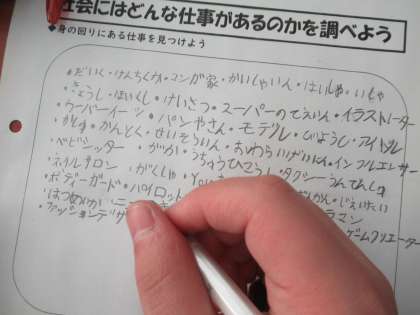 社会にはどんな仕事があるのかを調べよう
◆身の回りにある仕事を見つけよう
・だいく・けんちくか・マンガ家・かいしゃいん・はいしゃ・いしゃ
・きょうし・ほいくし・けいさつ・スーパーのてんいん・イラストレーター
・ウーバーイーツ・パンやさん・モデル・びようし・アイドル
・かしゅ・かんとく・せいそういん・おわらいげいにん・インフルエンサー
・ベビーシッター・がか・うちゅうひこうし・タクシーうんてんしゅ
・ネイルサロン・がくしゃ・You
・ボディーガード・パイロット かん・じえいたい
・はつめいか ラマン
・ファッションデザ ゲームクリエーター